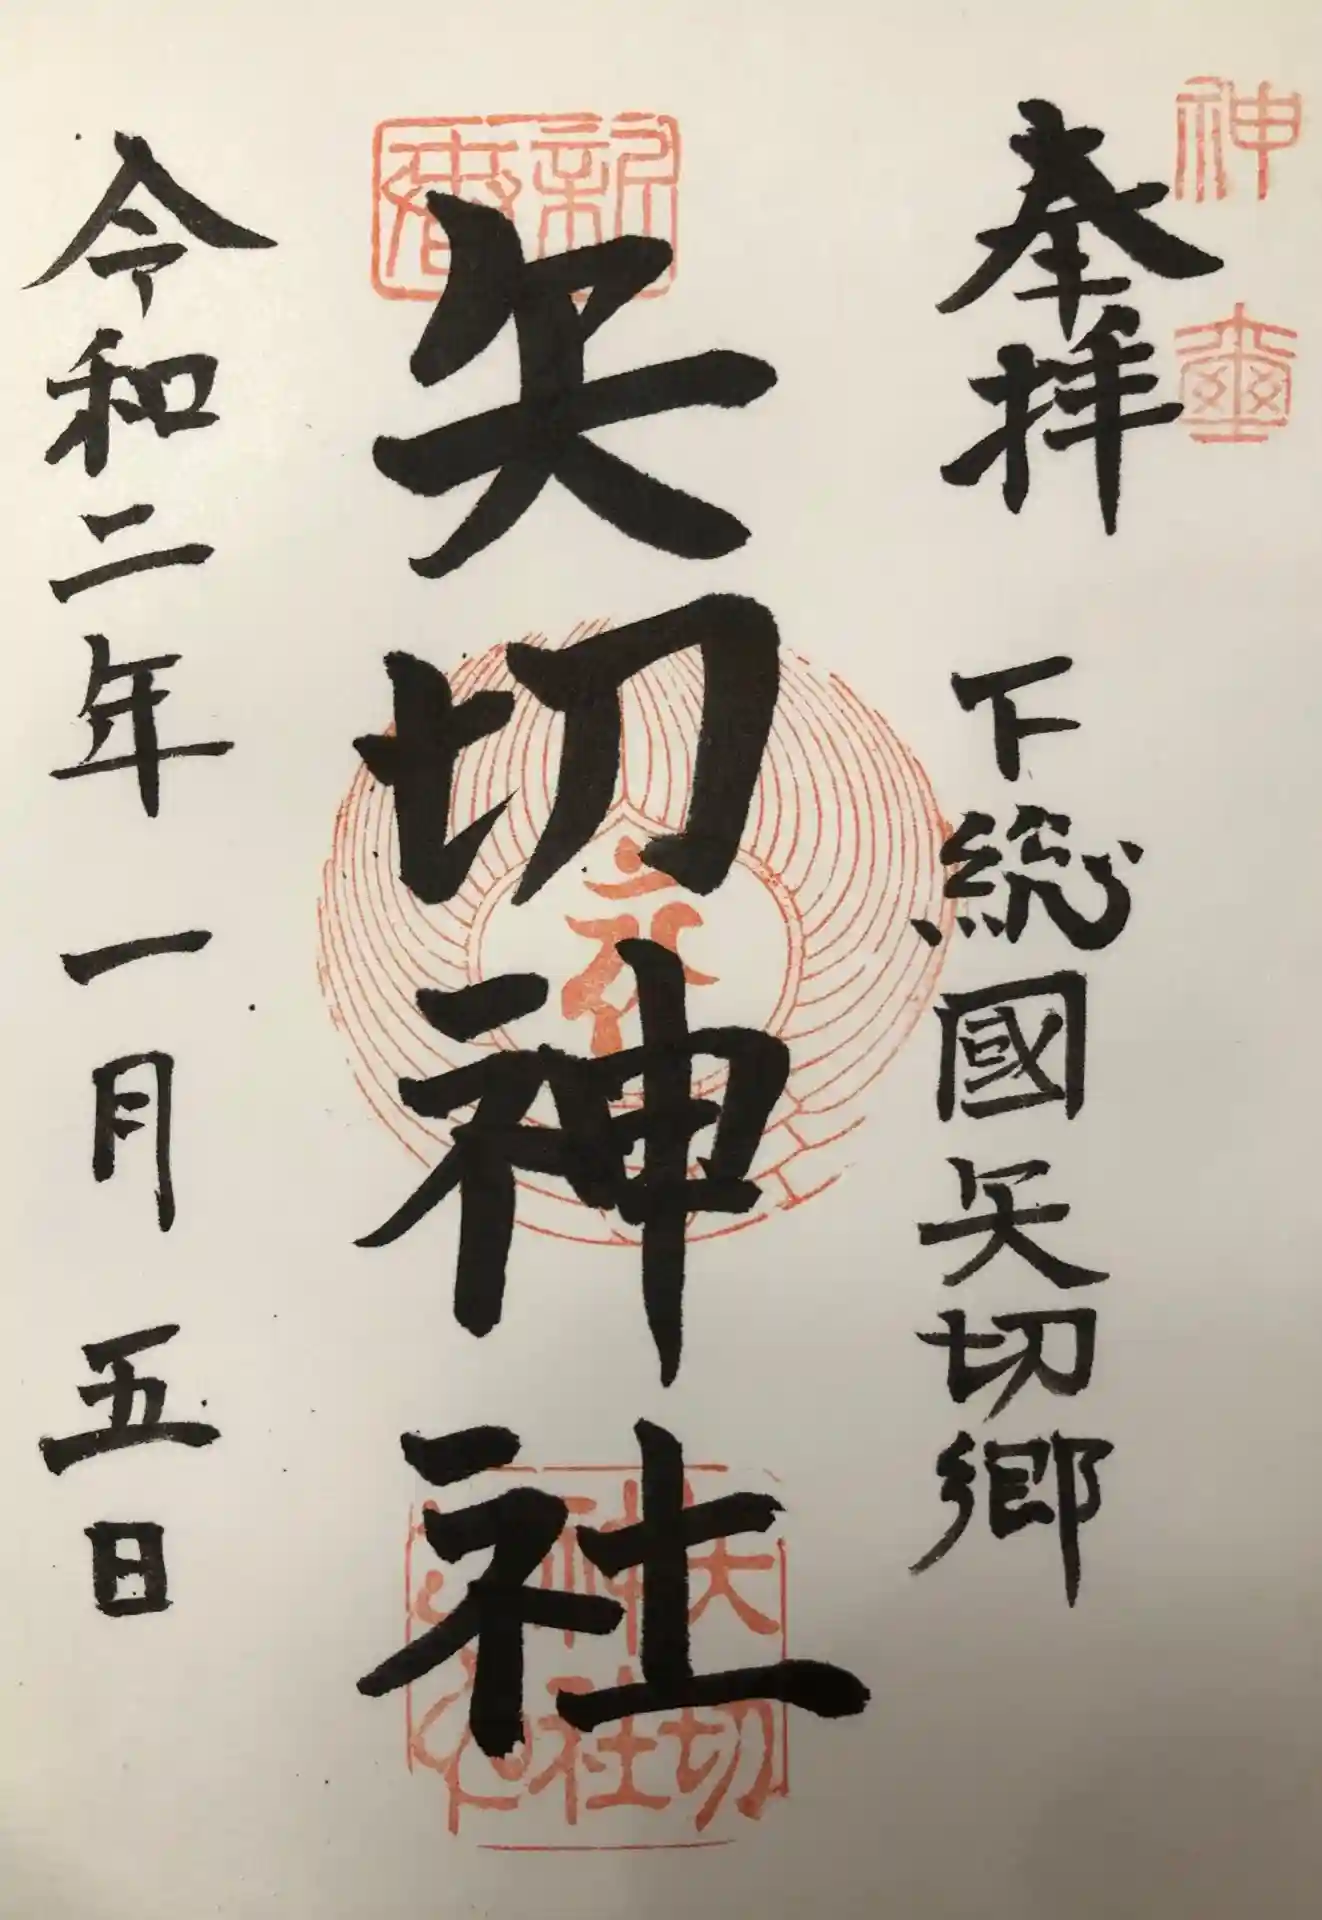 神璽
奉拝 下総國矢切郷
新春
矢切神社
元
矢切
神社
令和二年 一月 五日